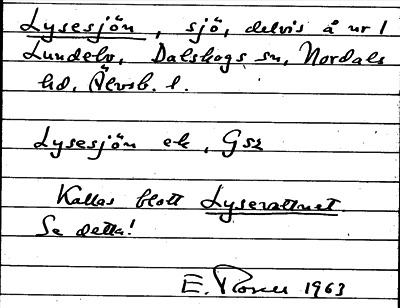 Lysesjön, sjö, delvis å nr 1
Lundebo, Dalskogs sn, Nordals
hd, Älvsb. l.
Lysesjön ek, Gsz
Kallas blott Lysevattnet
Se detta!
E. Rosell 1963